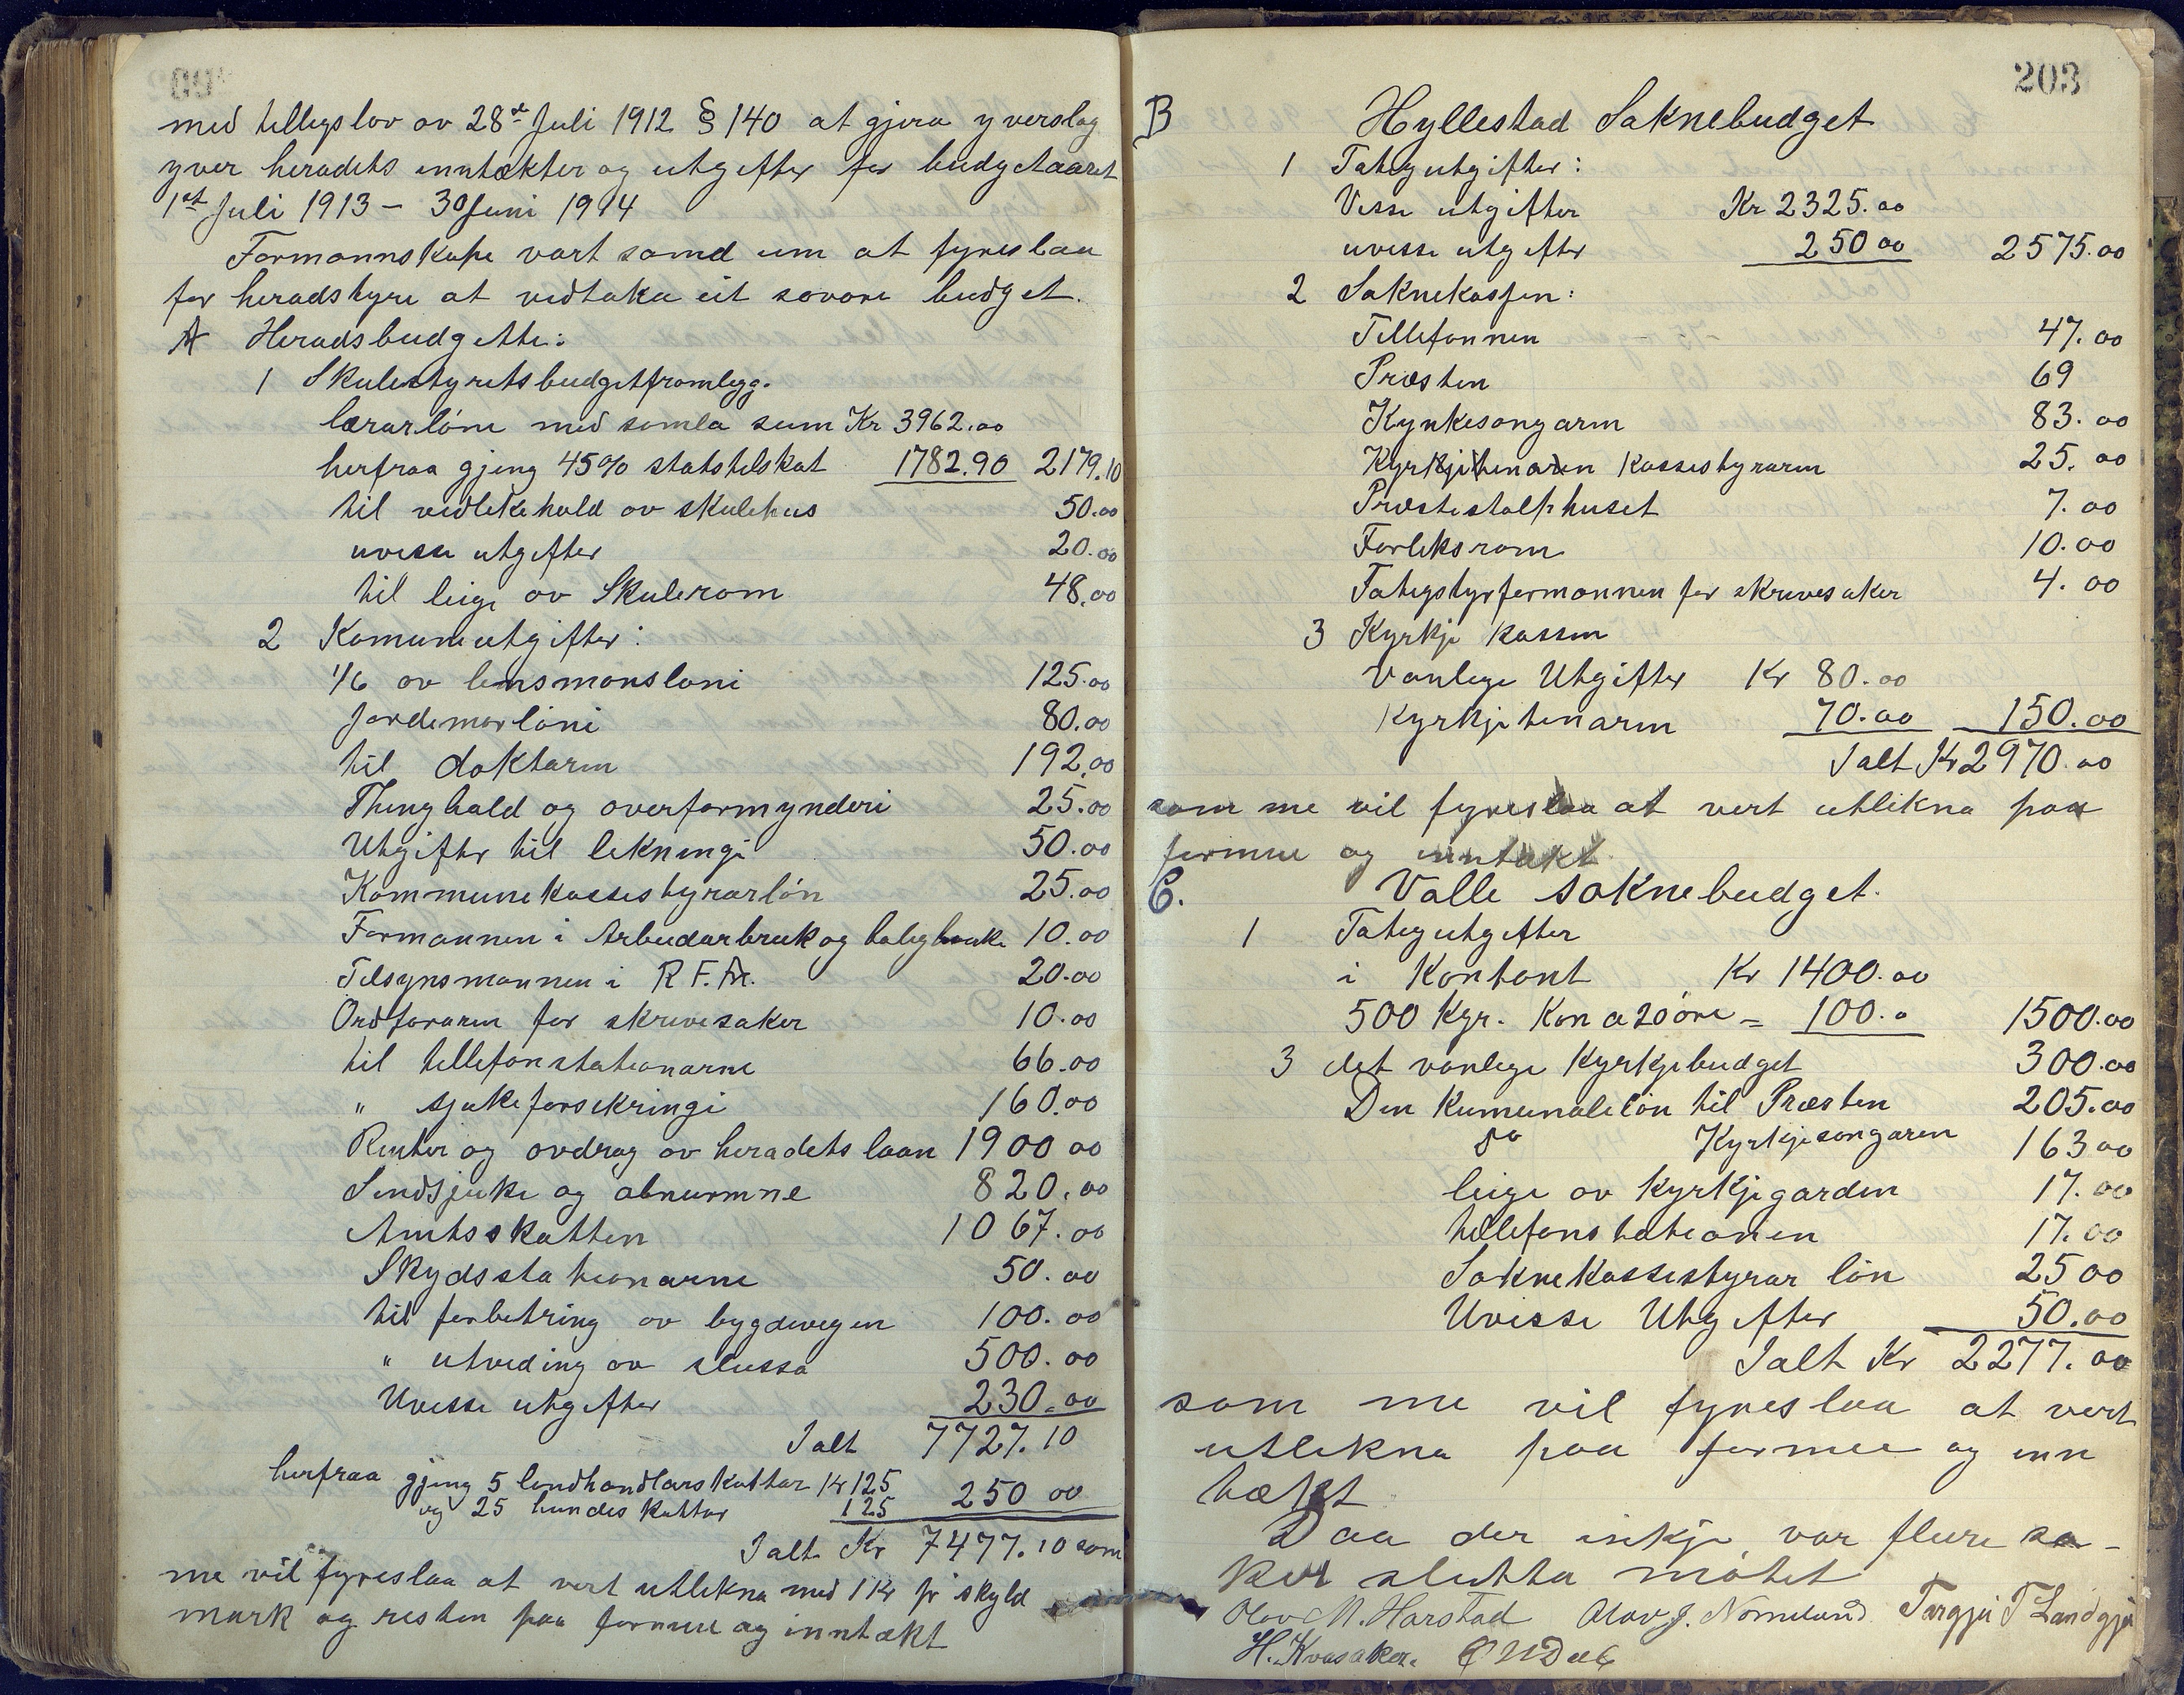 med tillegslov av 28de Juli 1912 § 140 at gjera yverslag
yver heradets inntækter og utgifter for budgetaaret
1st Juli 1913 - 30 Juni 1914
Formannskape vart samd um at fyreslaa
for heradstyre at vedtaka eit sovore budget.
A Heradsbudgette:
1 Skulestyretsbudgetframlegg.
lærarlöne med samla sum Kr 3962.00
herfraa gjeng 45% statstilskot 1782.90 2179.10
til vedlikehald av skulehus 50.00
uvisse utgifter 20.00
til leige av Skulerom 48.00
2 Komuneutgifter:
1/6 av lensmansloni 125.00
Jordemorlöni 80.00
til doktaren 192.00
Thinghald og overformynderi 25.00
Utgifter til likningi 50.00
Kommunekassestyrarlön 25.00
Formannen i Arbeidarbruk og bolig banke 10.00
Tilsynsmannen i R. F. M. 20.00
Ordføraren for skrivesaker 10.00
til tellefonstationarne 66.00
" sjukeforsikringi 160.00
Renter og avdrag av heradets laan 1900 00
Sindsjuke og abnurmne 820.00
Amtsskatten 1067.00
Skydsstationarne 50.00
til forbetring av bygdevegen 100.00
" utviding av slussa 500.00
Uvisse utgifter 230.00
Ialt 7727.10
herfraa gjeng 5 landhandlarskattar Kr 125
og 25 hundeskattar 125 250 00
Ialt Kr 7477.10 som
me vil fyreslaa at vert utlikna med 1 Kr pr skyld
mark og resten paa formue og inntækt
203
B Hyllestad Soknebudget
1 Fatigutgifter:
Visse utgifter Kr 2325.00
uvisse utgifter 250 00 2575.00
2 Soknekassen:
Tellefonnen 47.00
Præsten 69
Kyrkesongarin 83.00
Kyrkjetenaren Kassestyrarin 25.00
Præstestallhuset 7.00
Forliksrom 10.00
Fatigstyrformannen for skrivesaker 4.00
3 Kyrkje kassen
Vanlege Utgifter Kr 80.00
Kyrkjetenarin 70.00 150.00
Ialt Kr 2970.00
som me vil fyreslaa at vert utlikna paa
formue og inntækt
C. Valle soknebudget.
1 Fatigutgifter
i Kontant Kr 1400.00
500 Kgr. Kon a 20 öre = 100.0 1500.00
3 det vanlege Kyrkjebudget 300.00
Den Kumunale lön til Præsten 205.00
do Kyrkjesongaren 163 00
leige av Kyrkjegarden 17.00
tellefonstationen 17.00
Soknekassestyrar lön 25 00
Uvisse Utgifter 50.00
Ialt Kr 2277.00
som me vil fyreslaa at vert
utlikna paa formue og inn
tækt
Daa der inkje var fleire sa-
ker slutta mötet
Olav M. Harstad Olav J. Nomeland Targjei T Landgja
H. Kvasaker.